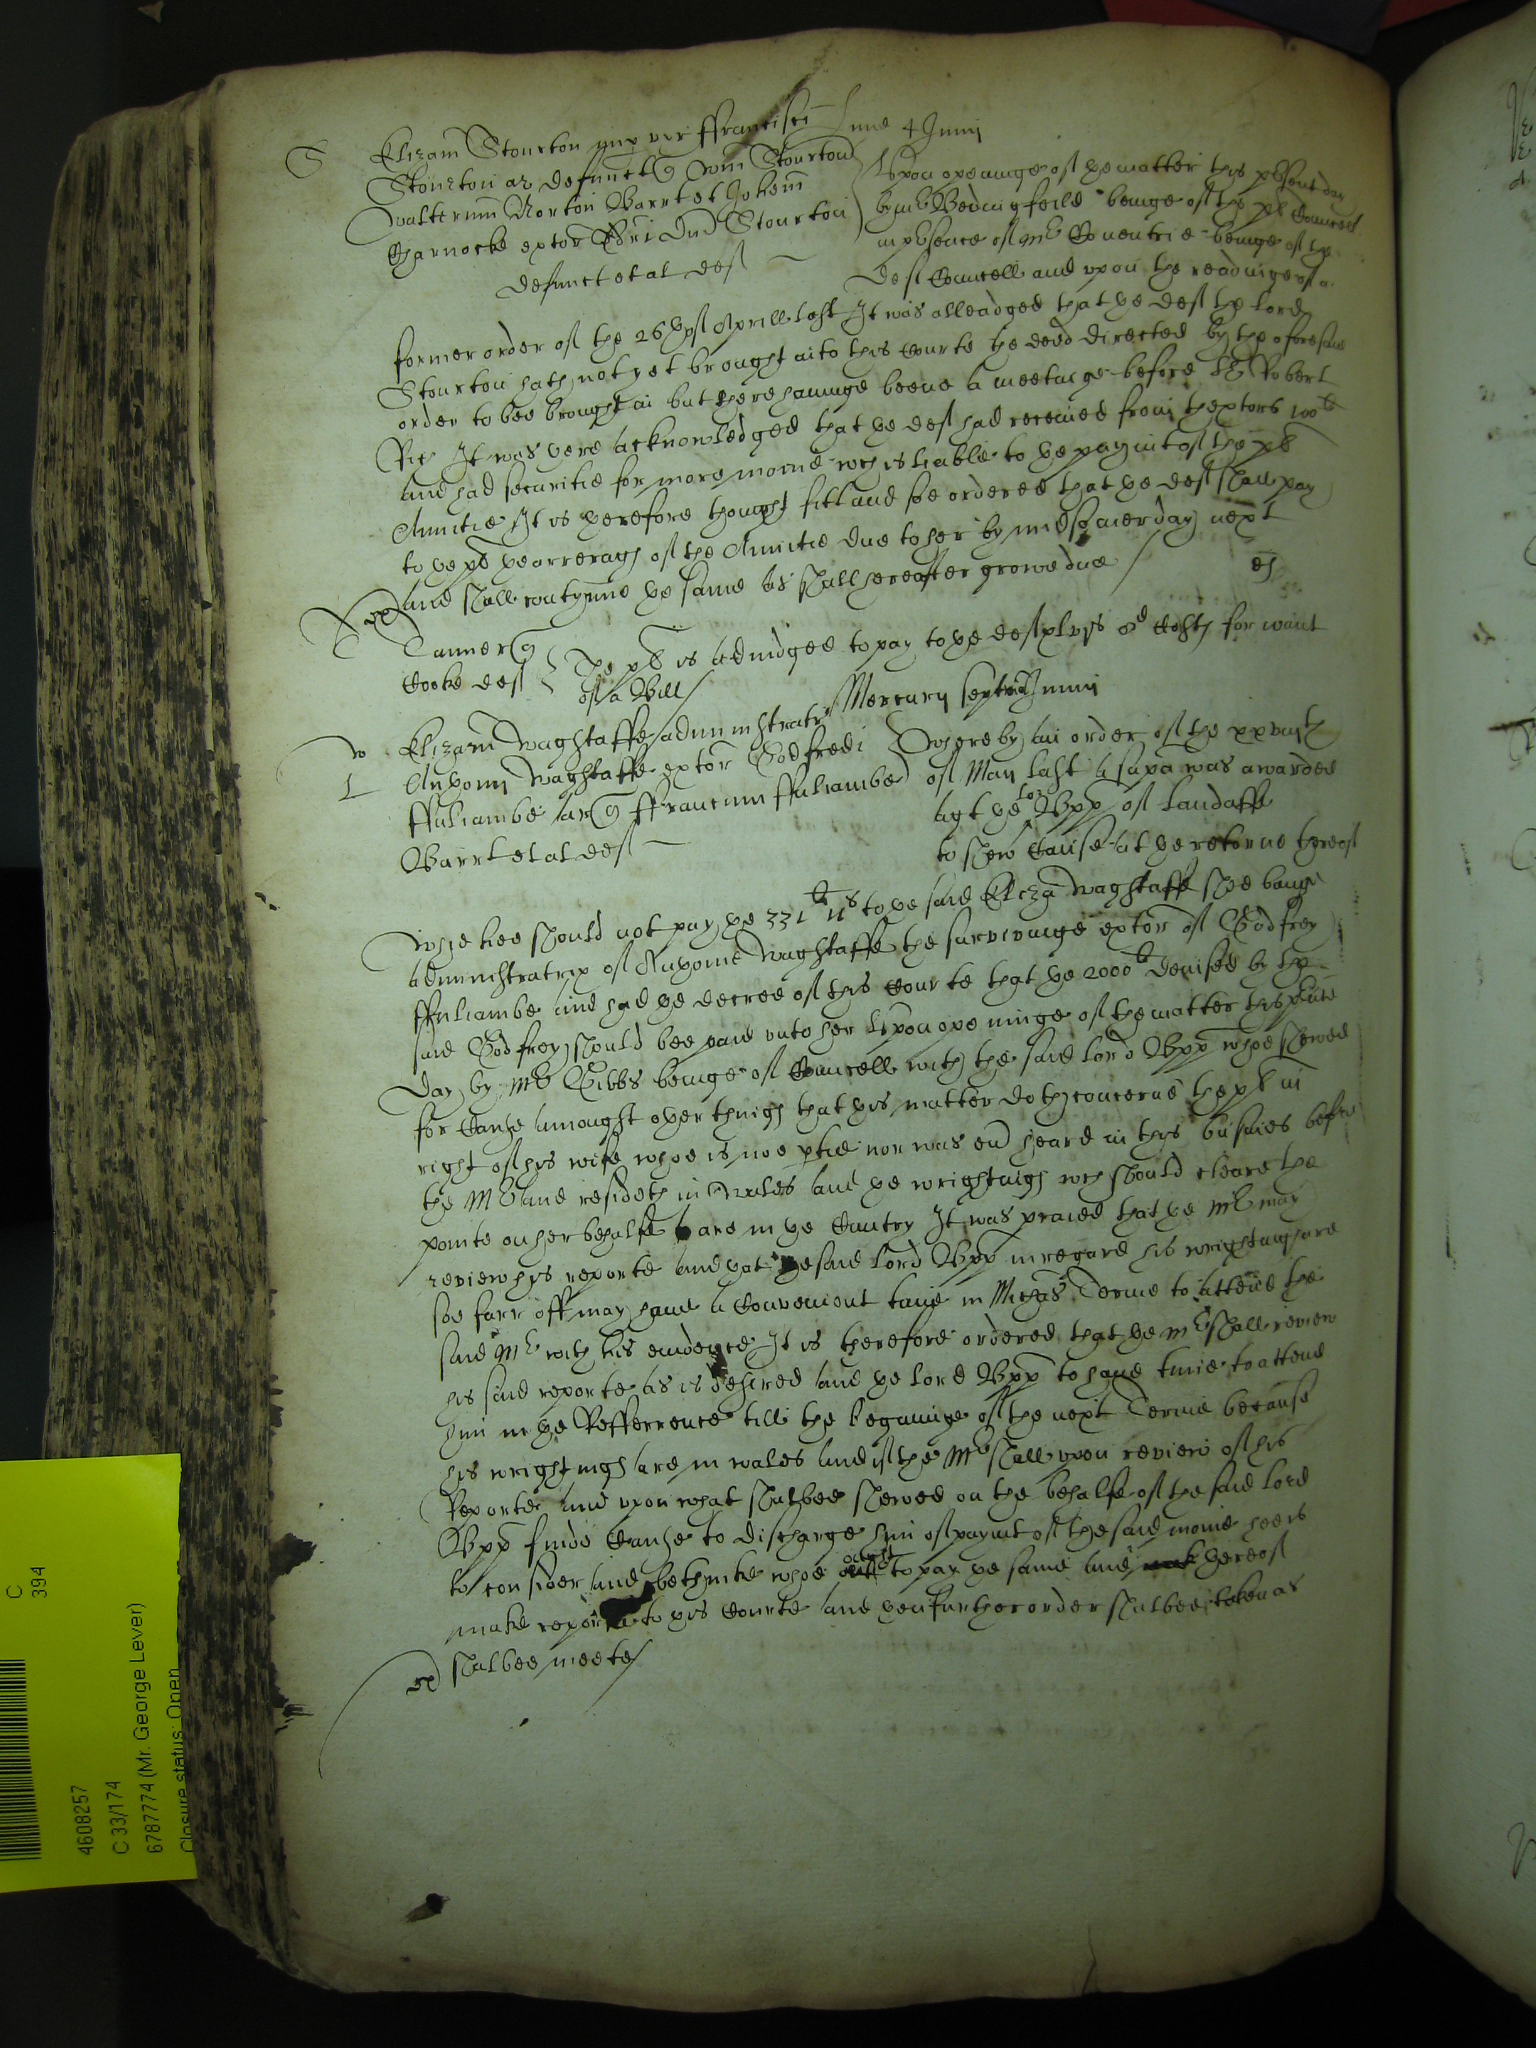 S Elizam Stourton nup vx ffrancisci Lune 4 Junij
Stourton ar defunct q Dnm Stourton
Walterum Norton Barrt et Johem
Charnocke extor Edri Dni Stourton
defunct et al def
Upon openinge of ye matter this pñte day
by mr Bedingfeild beinge of the pl Councell
in pñsence of mr Coventrie beinge of the
def Councell and upon the readinge of a
former order of the 26th of Aprill last It was alleadged that ye def the lord
Stourton hath not yet brought into this Courte the deed directed by the aforesaid
order to bee brought in but there havinge beene a meetinge before Sr Robert
Rit It was there acknowledged that ye def had received from thextors 100li
and had securitie for more monie wch is liable to ye paymt of the pl
Anuitie It is therefore thought fitt and soe ordered that ye def shall pay
to ye pl ye arreragh of the Anuitie due to her by midsomer day next
and shall contynue ye same as shall hereafter growe due /
Tanner q
Cooke def
The pl is adiudged to pay to ye def Costh for want
of a Bill /
Mercurij Septimo Junij
w Elizam Wagstaffe administratr
L Anthonij Wagstaffe extor Godfredi
ffuliambe ar q ffrancum ffuliambe
Barrt et al def
Whereby an order of the xxviijth
of May last a supa was awarded
agt ye lord Bpp of Landaffe
to shew Cause at ye retorne thereof
whie hee should not pay ye 331li 11s to ye said Eliza Wagstaffe shee beinge
administratrix of Anthonie Wagstaffe the survivinge extor of Godfrey
ffuliambe and had ye decree of this Courte that ye 2000li devised by the
said Godfrey should bee paid unto her Upon openinge of the matter this pñte
day by mr Gibbs beinge of Councell with the said lord Bpp whoe shewed
for Cause amongst other thingh that this matter doth concerne the pl in
right of his wife whoe is noe ptie nor was evr heard in this busines before
the Mr and resideth in Wales and ye wrightingh wch should cleare the
pointe on her behalfe are in ye Cuntry It was praied that ye Mr may
review his reporte and yat ye said lord Bpp in regard his wrightingh are
soe farr off may have a Convenient time in Michas Terme to attend the
said Mr with his evidence It is therefore ordered that ye Mr shall review
his said reporte as is desired and ye lord Bpp to have time to attend
him in ye Refferrence till the beginninge of the next Terme because
his wrightingh are in Wales and if the Mr shall upon review of his
Reporte and upon what shalbee shewed on the behalfe of the said lord
Bpp finde Cause to discharge him of paymt of the said monie hee is
to consider and bethinke whoe ought to pay ye same and thereof
make reporte to this Courte and then further order shalbee taken as
shalbee meete /
C
394
4608257
C 33/174
6787774 (Mr. George Lever)
Closure status: Open